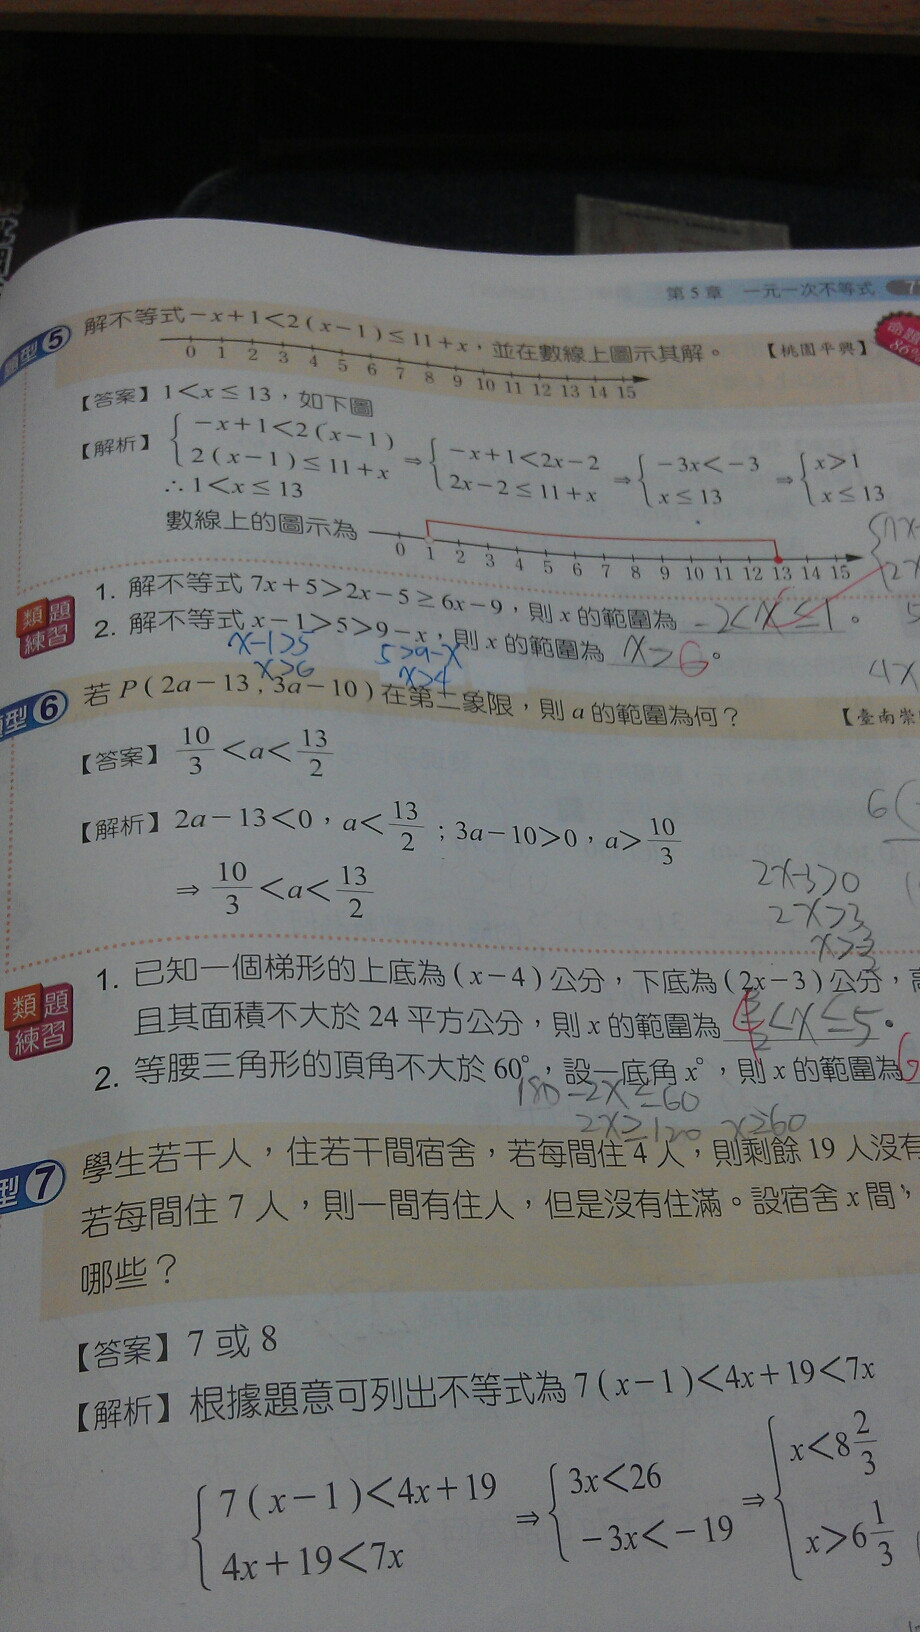 第5章 一元一次不等式
型5 解不等式－x＋1＜2(x－1)≤11＋x，並在數線上圖示其解。 【桃園平興】
0 1 2 3 4 5 6 7 8 9 10 11 12 13 14 15
【答案】1＜x≤13，如下圖
【解析】{－x＋1＜2(x－1) ⇒ {－x＋1＜2x－2 ⇒ {－3x＜－3 ⇒ {x＞1
2(x－1)≤11＋x 2x－2≤11＋x x≤13 x≤13
∴1＜x≤13
數線上的圖示為
0 1 2 3 4 5 6 7 8 9 10 11 12 13 14 15
類題練習
1. 解不等式7x＋5＞2x－5≥6x－9，則x的範圍為 -2<x≤1 。
2. 解不等式x－1＞5＞9－x，則x的範圍為 x>6 。
x-1>5 5>9-x
x>6 x>4
型6 若P(2a－13,3a－10)在第二象限，則a的範圍為何？ 【臺南崇
【答案】10/3＜a＜13/2
【解析】2a－13＜0，a＜13/2；3a－10＞0，a＞10/3
⇒ 10/3＜a＜13/2
2x-3>0
2x>3
x>3/2
類題練習
1. 已知一個梯形的上底為(x－4)公分，下底為(2x－3)公分，高
且其面積不大於24平方公分，則x的範圍為 <x≤5 。
2. 等腰三角形的頂角不大於60°，設一底角x°，則x的範圍為
180-2x≤60
2x≥120 x≥60
型7 學生若干人，住若干間宿舍，若每間住4人，則剩餘19人沒有
若每間住7人，則一間有住人，但是沒有住滿。設宿舍x間，
哪些？
【答案】7或8
【解析】根據題意可列出不等式為7(x－1)＜4x＋19＜7x
{7(x－1)＜4x＋19 ⇒ {3x＜26 ⇒ {x＜8 2/3
4x＋19＜7x －3x＜－19 x＞6 1/3